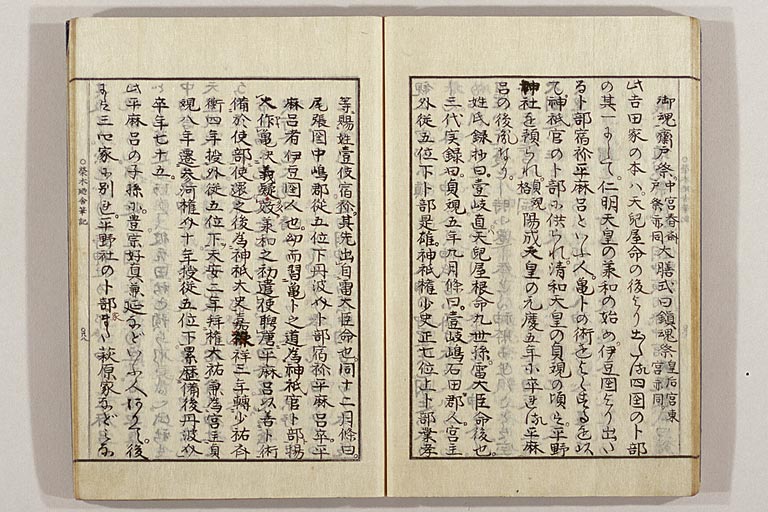 御魂齋戸祭。中宮春齋戸祭亦同 大膳式曰鎮魂祭皇后宮東宮亦同
此吉田家の本ハ天兒屋命の後より出て四国の卜部
の其一にして仁明天皇の承和の始め伊豆国より出
る卜部宿祢平麻呂といふ人亀卜の術をよくするを以
て神祇官の卜部に供られ清和天皇の貞観の頃に平野
神社を預られ陽成天皇の元慶五年に卒せり平麻
呂の後胤なり
姓氏録抄曰壹岐直天兒屋根命九世孫雷大臣命後也
三代実録曰貞観五年九月條曰壹岐嶋石田郡人宮主
外從五位下卜部是雄神祇權少史正七位上卜部業孝
等賜姓壹伎宿祢其先出自雷大臣命也同十二月條曰
尾張国中嶋郡從五位下丹波介卜部宿祢平麻呂卒平
麻呂者伊豆国人也幼而習亀卜之道為神祇官卜部揚
火作亀決義疑多效承和之初遣使聘唐平麻呂以善卜術
備於使部使還之後為神祇大史嘉祥三年轉少祐齊
衡四年授外從五位下天安二年拜權大祐兼為宮主貞
觀八年遷參河權介十年授從五位下累歴備後丹波介
卒年七十五
此平麻呂の子孫に豊宗好真兼延などいふ人ありて後
また三四家に別る平野社の卜部家また萩原家など
○榮木廼舎筆記